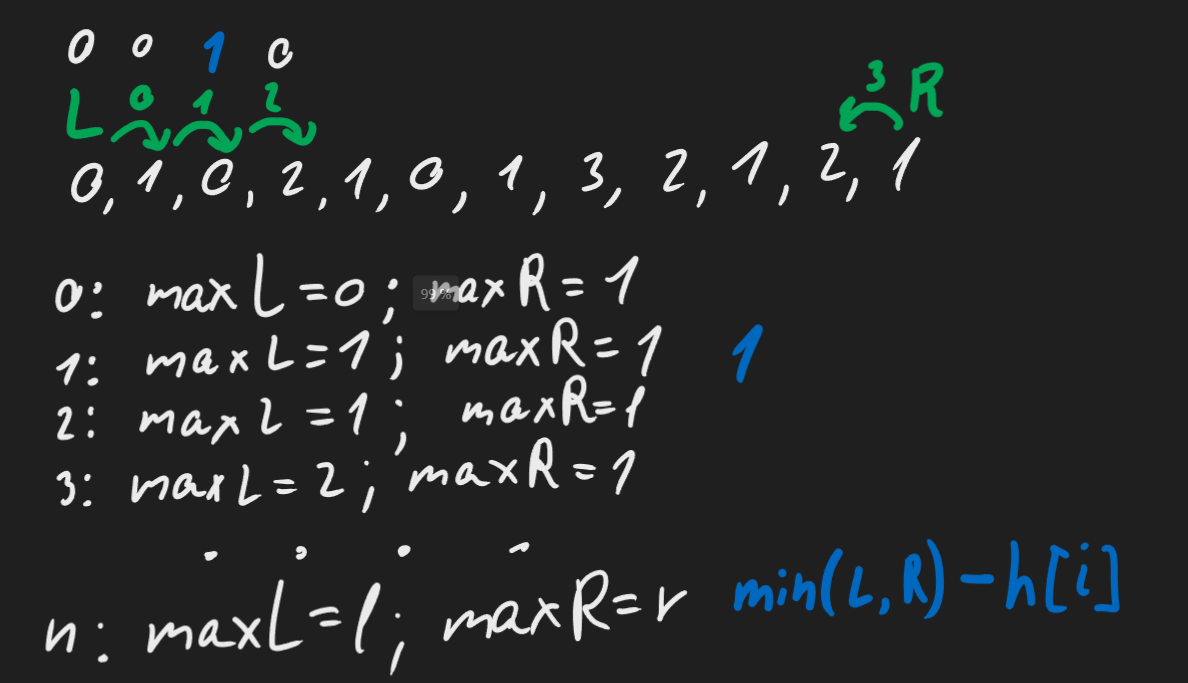 0 0 1 0
L 0 1 2 3 R
0, 1, 0, 2, 1, 0, 1, 3, 2, 1, 2, 1
0: maxL=0; maxR=1
1: maxL=1; maxR=1 1
2: maxL=1; maxR=1
3: maxL=2; maxR=1
n: maxL=l; maxR=r min(L,R)-h[i]